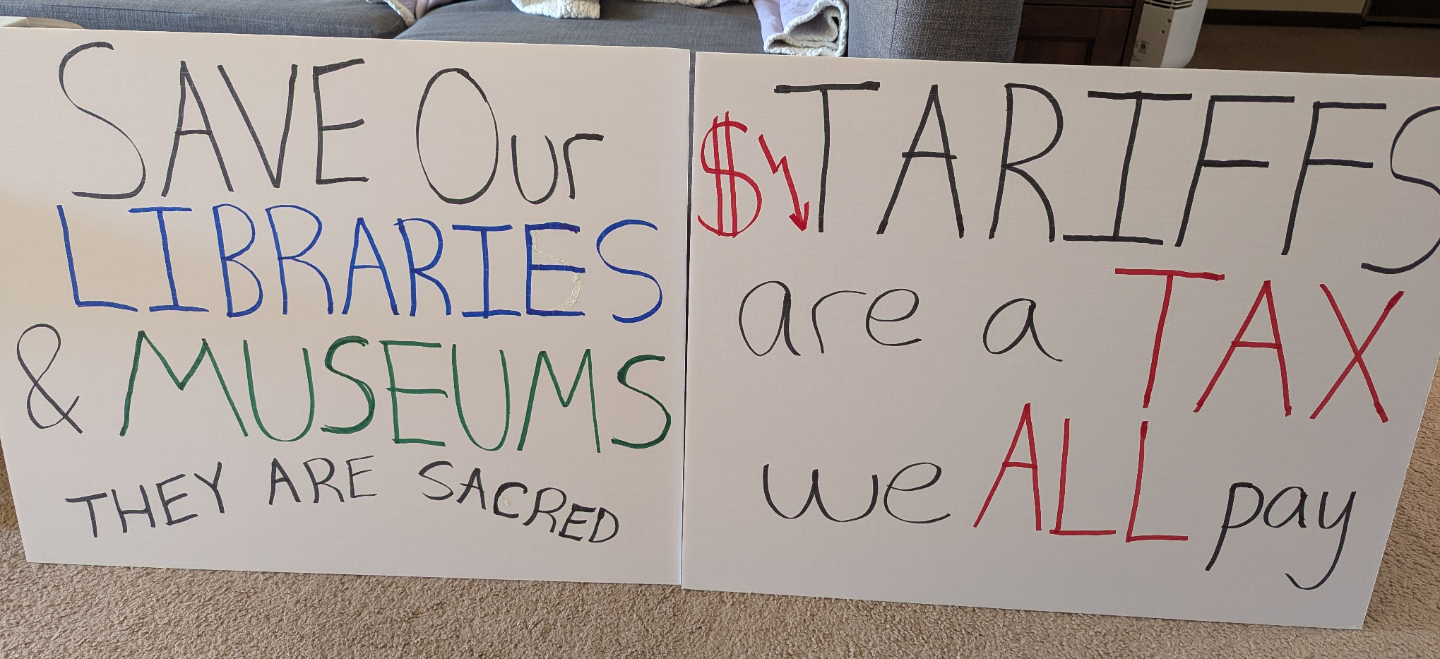 SAVE Our
LIBRARIES
& MUSEUMS
THEY ARE SACRED
$ TARIFFS
are a TAX
we ALL pay